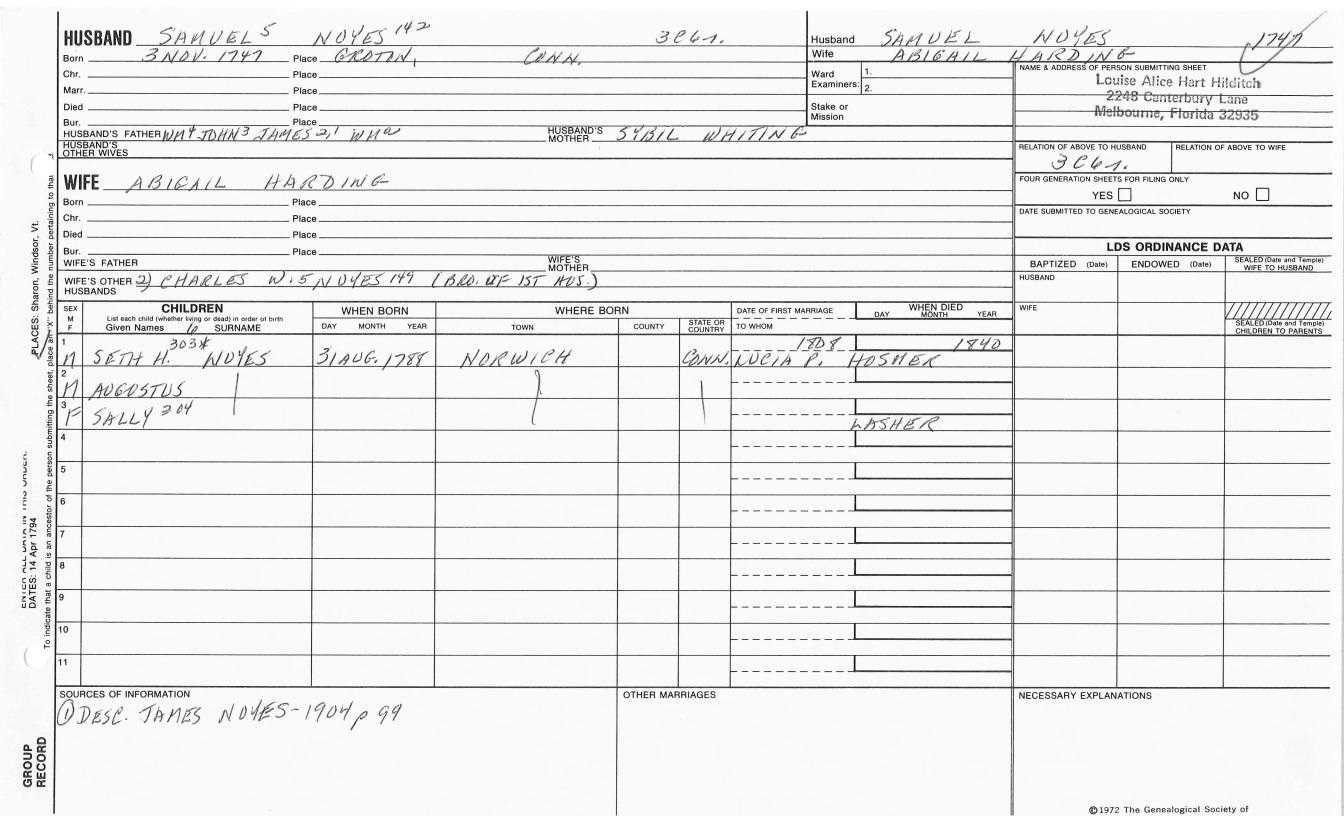 HUSBAND SAMUEL 5 NOYES 142 3C6r.
Born 3 NOV. 1747 Place GROTON, CONN.
Chr. Place
Marr. Place
Died Place
Bur. Place
HUSBAND'S FATHER WM 4 JOHN 3 JAMES 2,1 WM a HUSBAND'S MOTHER SYBIL WHITING
HUSBAND'S OTHER WIVES
Husband SAMUEL NOYES 1747
Wife ABIGAIL HARDING
Ward Examiners: 1. 2.
Stake or Mission
NAME & ADDRESS OF PERSON SUBMITTING SHEET
Louise Alice Hart Hilditch
2248 Canterbury Lane
Melbourne, Florida 32935
RELATION OF ABOVE TO HUSBAND RELATION OF ABOVE TO WIFE
3C6r.
FOUR GENERATION SHEETS FOR FILING ONLY
YES NO
DATE SUBMITTED TO GENEALOGICAL SOCIETY
WIFE ABIGAIL HARDING
Born Place
Chr. Place
Died Place
Bur. Place
WIFE'S FATHER WIFE'S MOTHER
WIFE'S OTHER HUSBANDS 2) CHARLES W. 5 NOYES 149 (BRO. OF 1ST HUS.)
LDS ORDINANCE DATA
BAPTIZED (Date) ENDOWED (Date) SEALED (Date and Temple) WIFE TO HUSBAND
HUSBAND
WIFE
SEALED (Date and Temple) CHILDREN TO PARENTS
SEX M F CHILDREN WHEN BORN WHERE BORN DATE OF FIRST MARRIAGE WHEN DIED
List each child (whether living or dead) in order of birth
Given Names 6 SURNAME DAY MONTH YEAR TOWN COUNTY STATE OR COUNTRY TO WHOM DAY MONTH YEAR
1 303* 1808 1840
M SETH H. NOYES 31 AUG. 1788 NORWICH CONN. LUCIA P. HOSMER
2
M AUGUSTUS
3
F SALLY 304 LASHER
4
5
6
7
8
9
10
11
SOURCES OF INFORMATION OTHER MARRIAGES NECESSARY EXPLANATIONS
① DESC. JAMES NOYES-1904 p 99
©1972 The Genealogical Society of
PLACES: Sharon, Windsor, Vt.
ENTER ALL DATA IN THIS ORDER:
DATES: 14 Apr 1794
To indicate that a child is an ancestor of the person submitting the sheet, place an "X" behind the number pertaining to that
GROUP RECORD